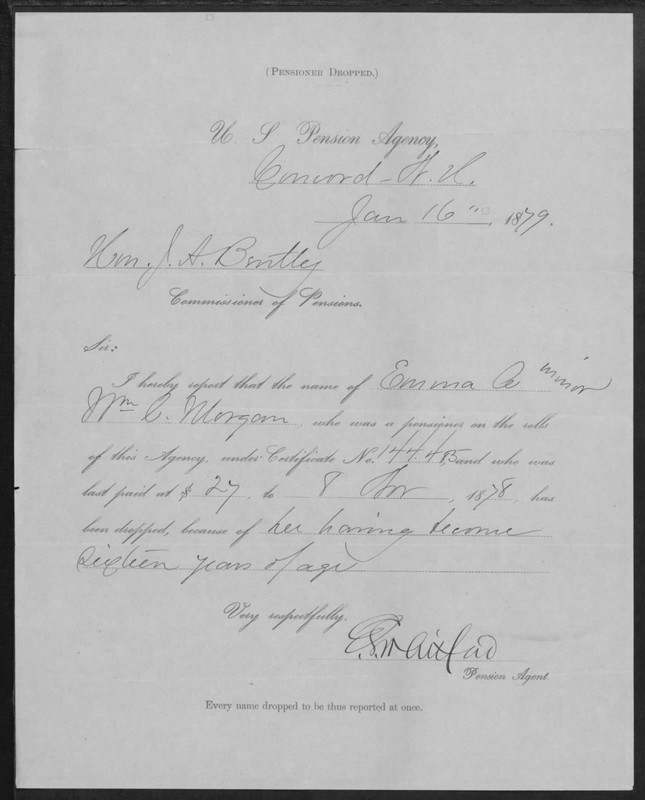 (PENSIONER DROPPED.)
U. S. Pension Agency,
Concord - N.H.
Jan 16" 1879.
Hon. J. A. Bentley
Commissioner of Pensions.
Sir:
I hereby report that the name of Emma A minor
Wm C. Morgan, who was a pensioner on the rolls
of this Agency, under Certificate No. 144.45 and who was
last paid at $ 27, to 8 Nov, 1878, has
been dropped, because of her having become
sixteen years of age
Very respectfully,
Pension Agent.
Every name dropped to be thus reported at once.